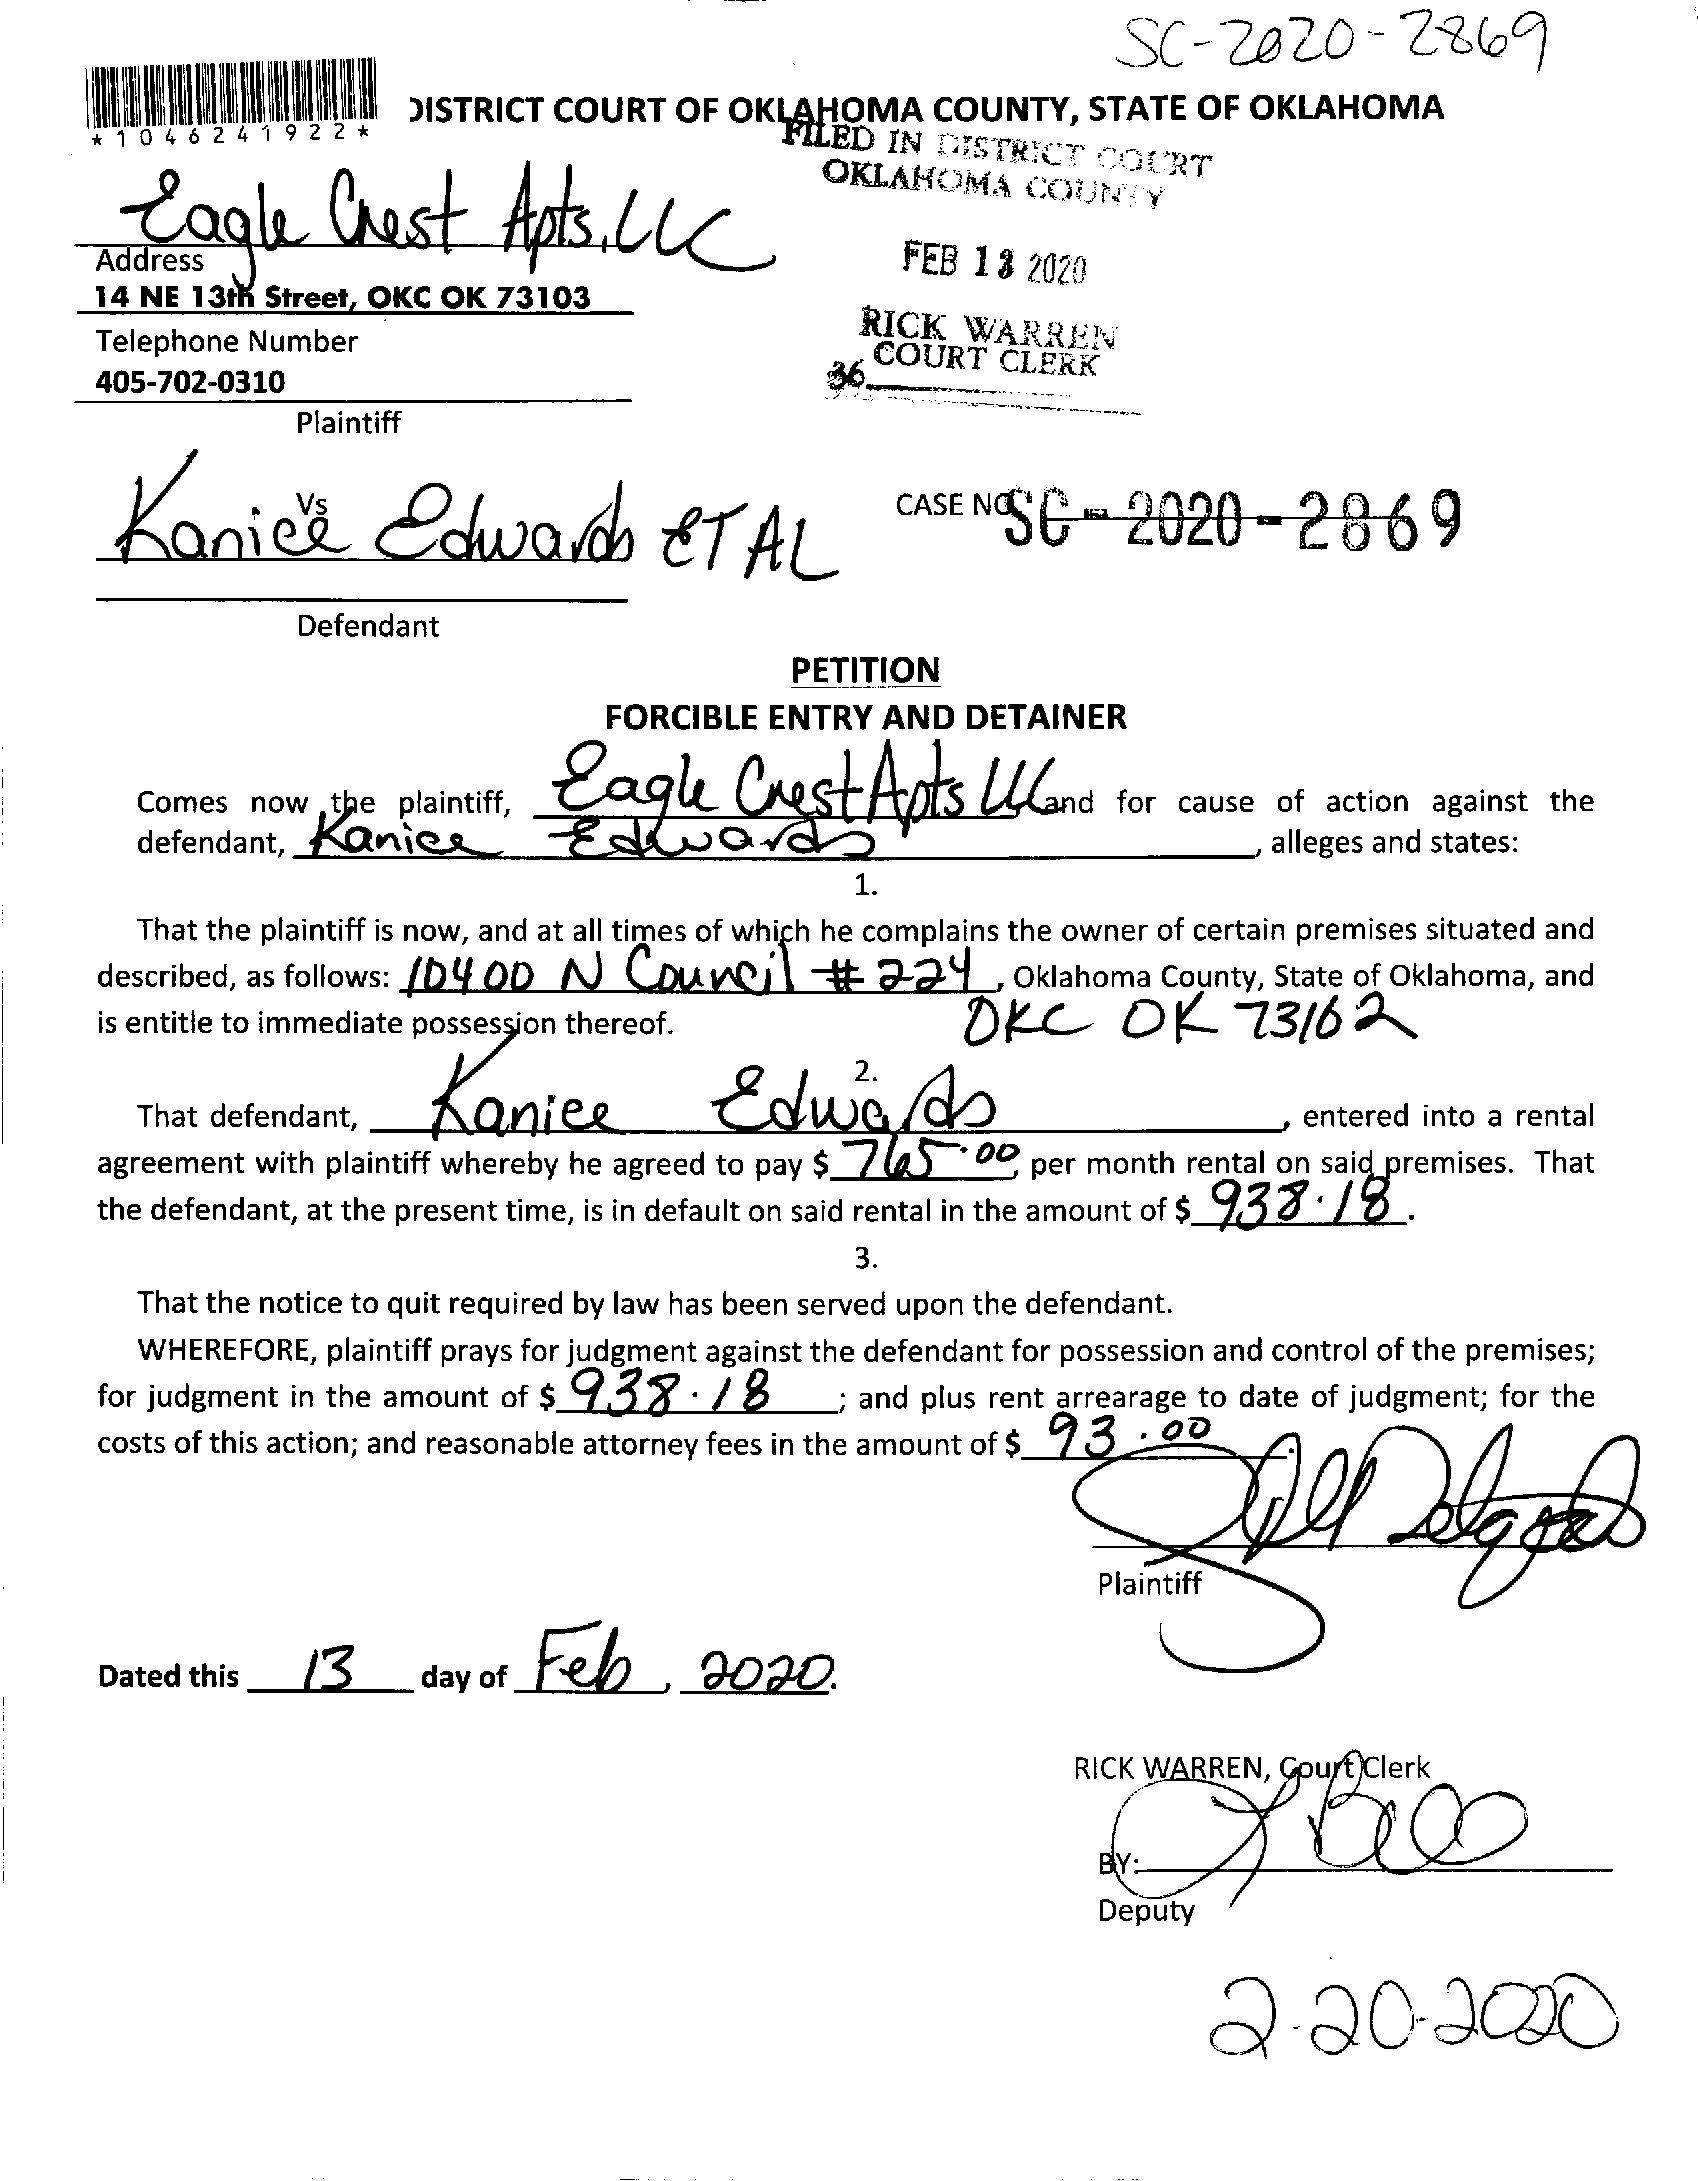 SC-2020-2869
*1046241922*
DISTRICT COURT OF OKLAHOMA COUNTY, STATE OF OKLAHOMA
FILED IN DISTRICT COURT
OKLAHOMA COUNTY
Eagle Crest Apts, LLC
Address
14 NE 13th Street, OKC OK 73103
FEB 13 2020
Telephone Number
405-702-0310
RICK WARREN
COURT CLERK
36
Plaintiff
Vs
Kanice Edwards ET AL
CASE NO SC-2020-2869
Defendant
PETITION
FORCIBLE ENTRY AND DETAINER
Comes now the plaintiff, Eagle Crest Apts LLC and for cause of action against the
defendant, Kanice Edwards, alleges and states:
1.
That the plaintiff is now, and at all times of which he complains the owner of certain premises situated and
described, as follows: 10400 N Council # 224, Oklahoma County, State of Oklahoma, and
is entitle to immediate possession thereof. OKC OK 73162
2.
That defendant, Kanice Edwards, entered into a rental
agreement with plaintiff whereby he agreed to pay $ 765.00, per month rental on said premises. That
the defendant, at the present time, is in default on said rental in the amount of $ 938.18.
3.
That the notice to quit required by law has been served upon the defendant.
WHEREFORE, plaintiff prays for judgment against the defendant for possession and control of the premises;
for judgment in the amount of $ 938.18; and plus rent arrearage to date of judgment; for the
costs of this action; and reasonable attorney fees in the amount of $ 93.00.
Plaintiff
Dated this 13 day of Feb, 2020.
RICK WARREN, Court Clerk
BY:
Deputy
2-20-2020